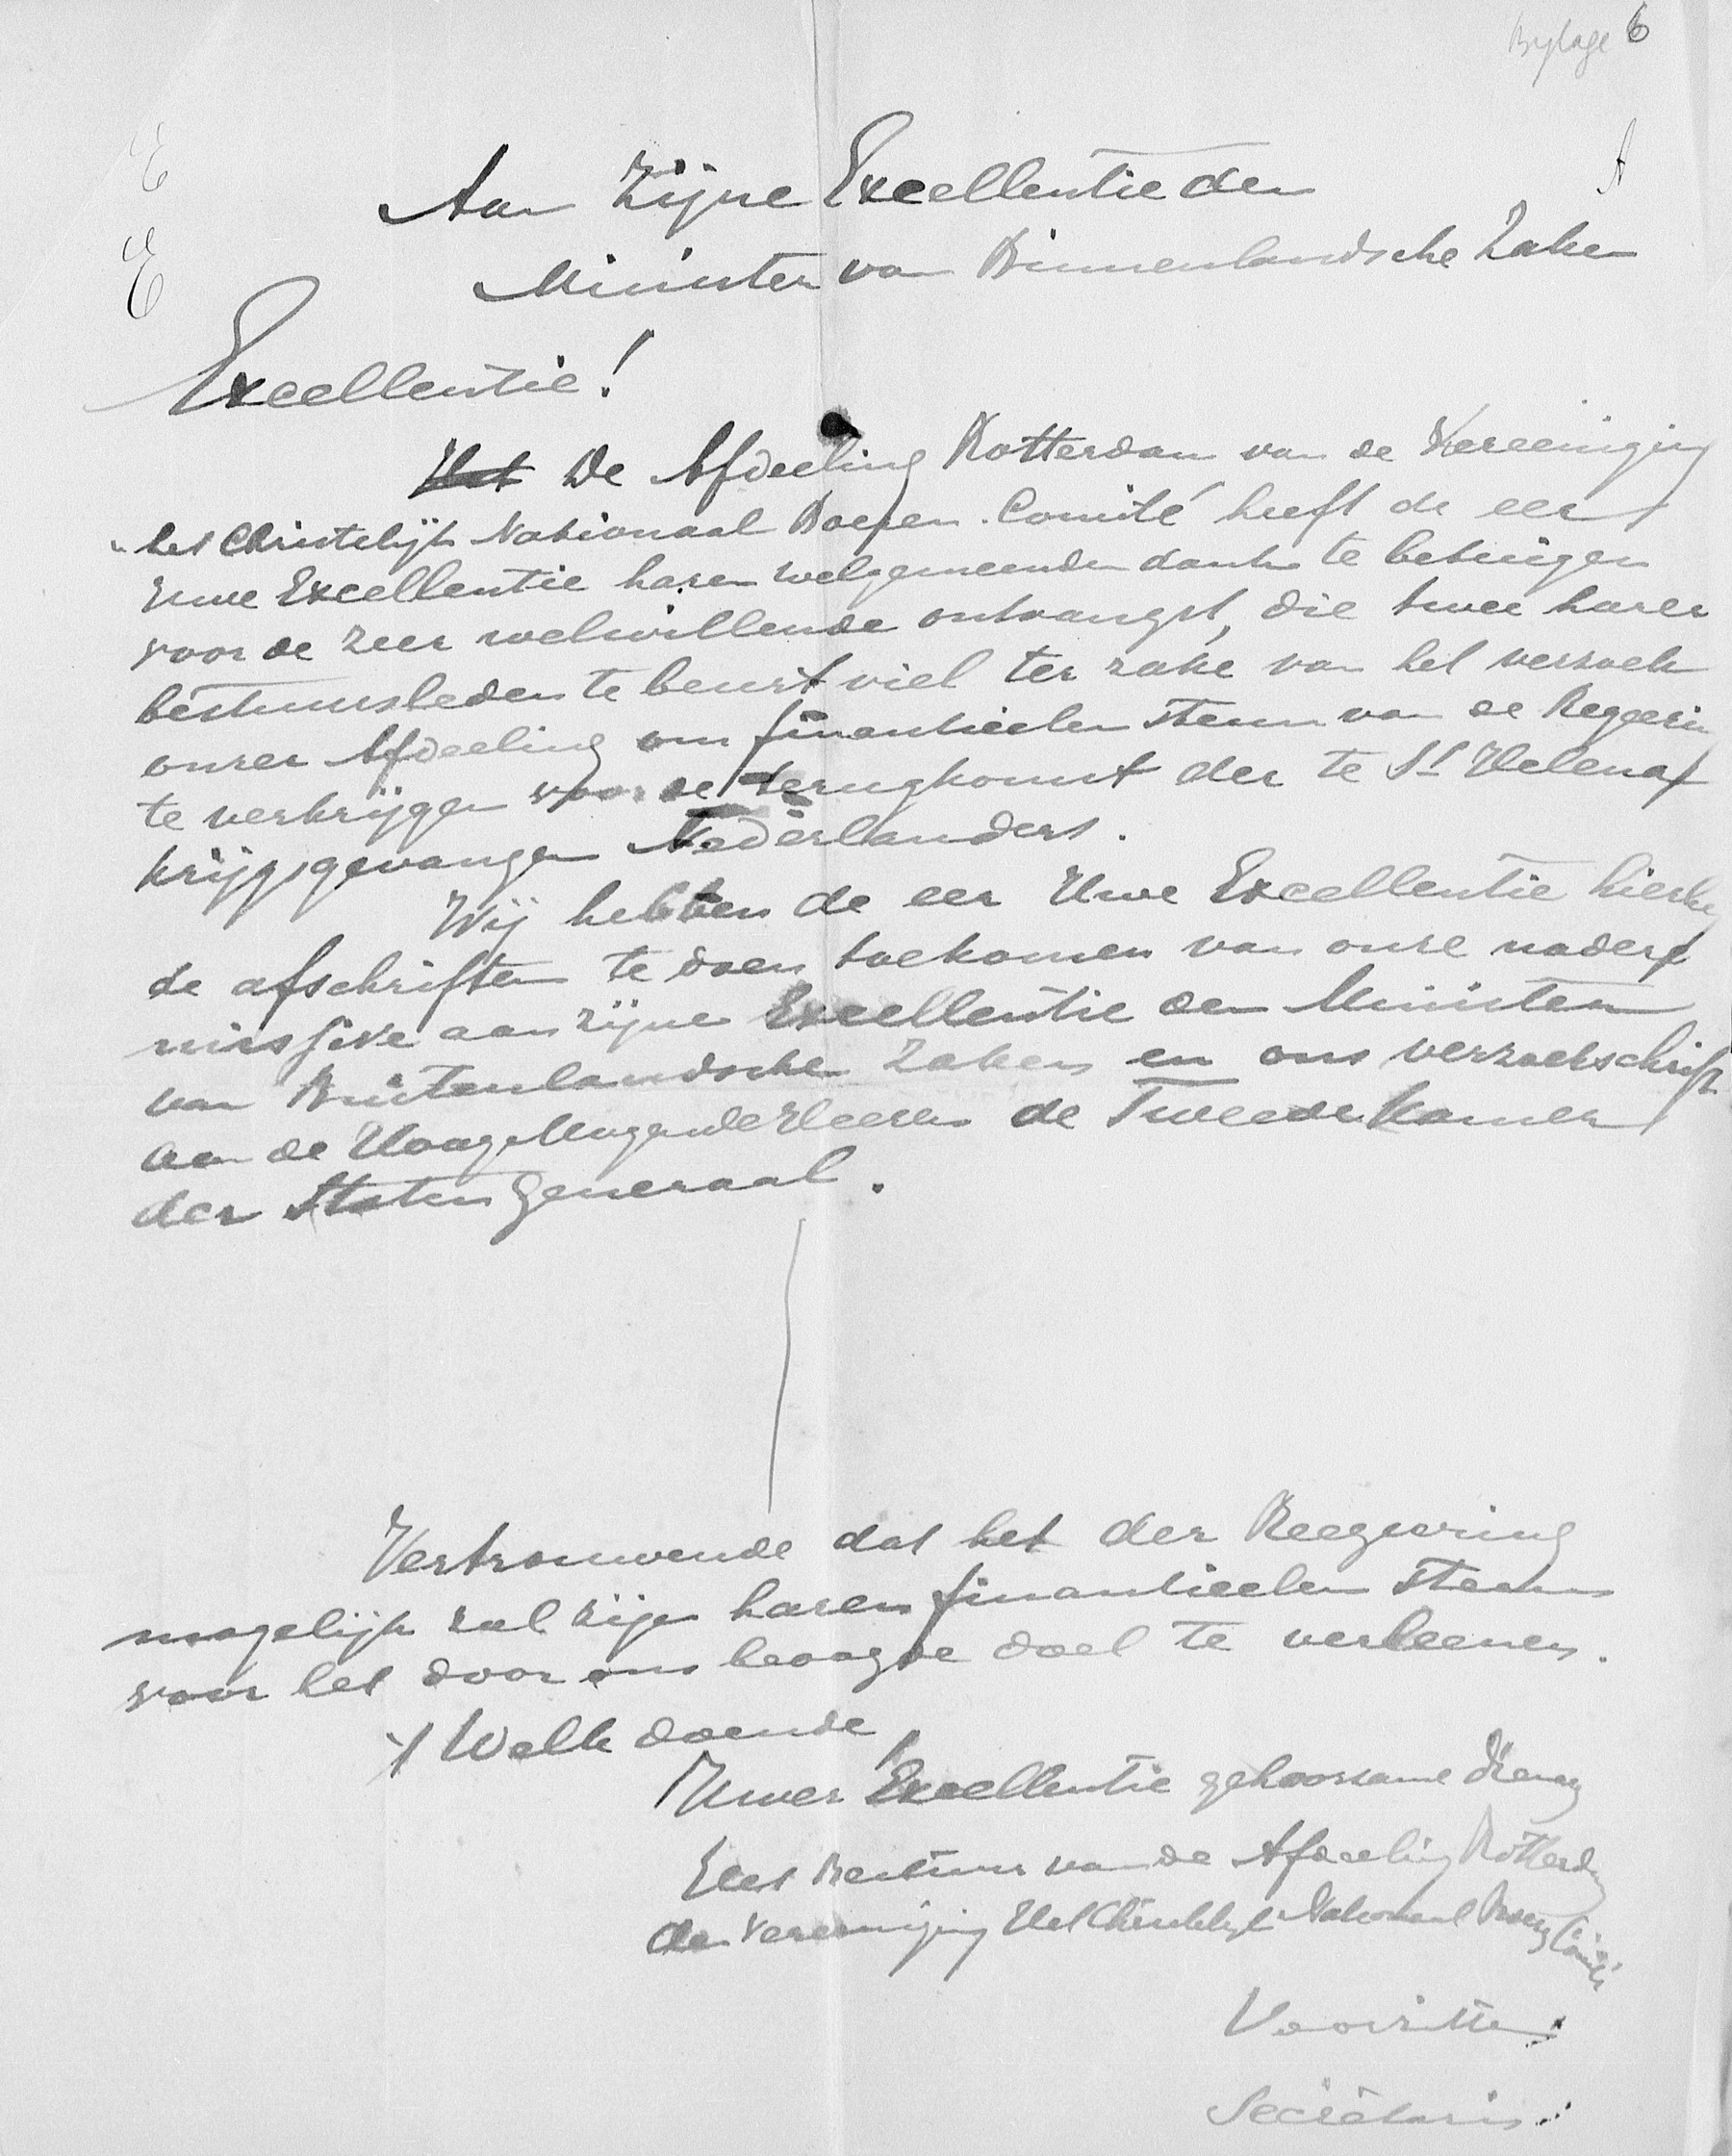 Bylage 6
E
E
A
Aan Zijne Excellentie den
Minister van Binnenlandsche Zaken
Excellentie!
Het De Afdeeling Rotterdam van de Vereeniging
"het Christelijk Nationaal Boeren-Comité heeft de eer
Uwe Excellentie haren welgemeenden dank te betuigen
voor de zeer welwillende ontvangst, die twee harer
bestuursleden te beurt viel ter zake van het verzoek
onzer Afdeeling om finantieelen steun van de Regeering
te verkrijgen voor de terugkomst der te St Helena
krijgsgevangen Nederlanders.
Wij hebben de eer Uwe Excellentie hierbij
de afschriften te doen toekomen van onze nadere
missive aan zijne Excellentie den Minister
van Buitenlandsche Zaken en ons verzoekschrift
aan de Hoog Mogende Heeren de Tweede Kamer
der Staten Generaal.
Vertrouwende dat het der Reegeering
mogelijk zal zijn haren finantieelen steun
voor het door ons beoogde doel te verleenen.
't Welk doende
Uwer Excellentie gehoorzame
Het Bestuur van de Afdeeling Rotterdam
der Vereeniging Het Christelijk Nationaal Boeren Comité
Voorzitter
Secretaris